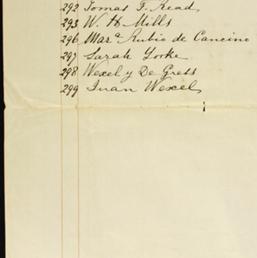 292 Tomas T. Read
293 W. H Mills
296 Marᵃ Rubio de Cancino
297 Sarah Yorke
298 Wexel y De Gress
299 Juan Wexel